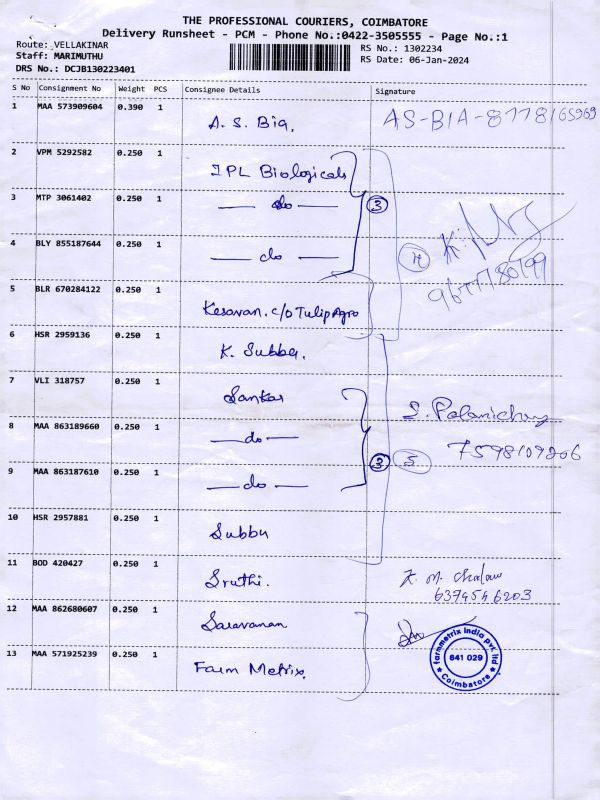 THE PROFESSIONAL COURIERS, COIMBATORE
Delivery Runsheet - PCM - Phone No.:0422-3505555 - Page No.:1
Route: VELLAKINAR
RS No.: 1302234
Staff: MARIMUTHU
RS Date: 06-Jan-2024
DRS No.: DCJB130223401
S No Consignment No Weight PCS Consignee Details Signature
1 MAA 573909604 0.390 1 A. S. Bia, AS-BIA-8778165969
2 VPM 5292582 0.250 1 IPL Biologicals
3 MTP 3061402 0.250 1 — do — 3
4 BLY 855187644 0.250 1 — do — 4
5 BLR 670284122 0.250 1 Kesavan. c/o Tulip Agro
6 HSR 2959136 0.250 1 K. Subbu.
7 VLI 318757 0.250 1 Sankar S. Palanichay
8 MAA 863189660 0.250 1 — do — 7598109206
9 MAA 863187610 0.250 1 — do — 3 5
10 HSR 2957881 0.250 1 Subbu
11 BOD 420427 0.250 1 Sruthi. 6374546203
12 MAA 862680607 0.250 1 Saravanan
13 MAA 571925239 0.250 1 Farm Metrix.
farmmetrix india pvt. ltd
641 029
Coimbatore